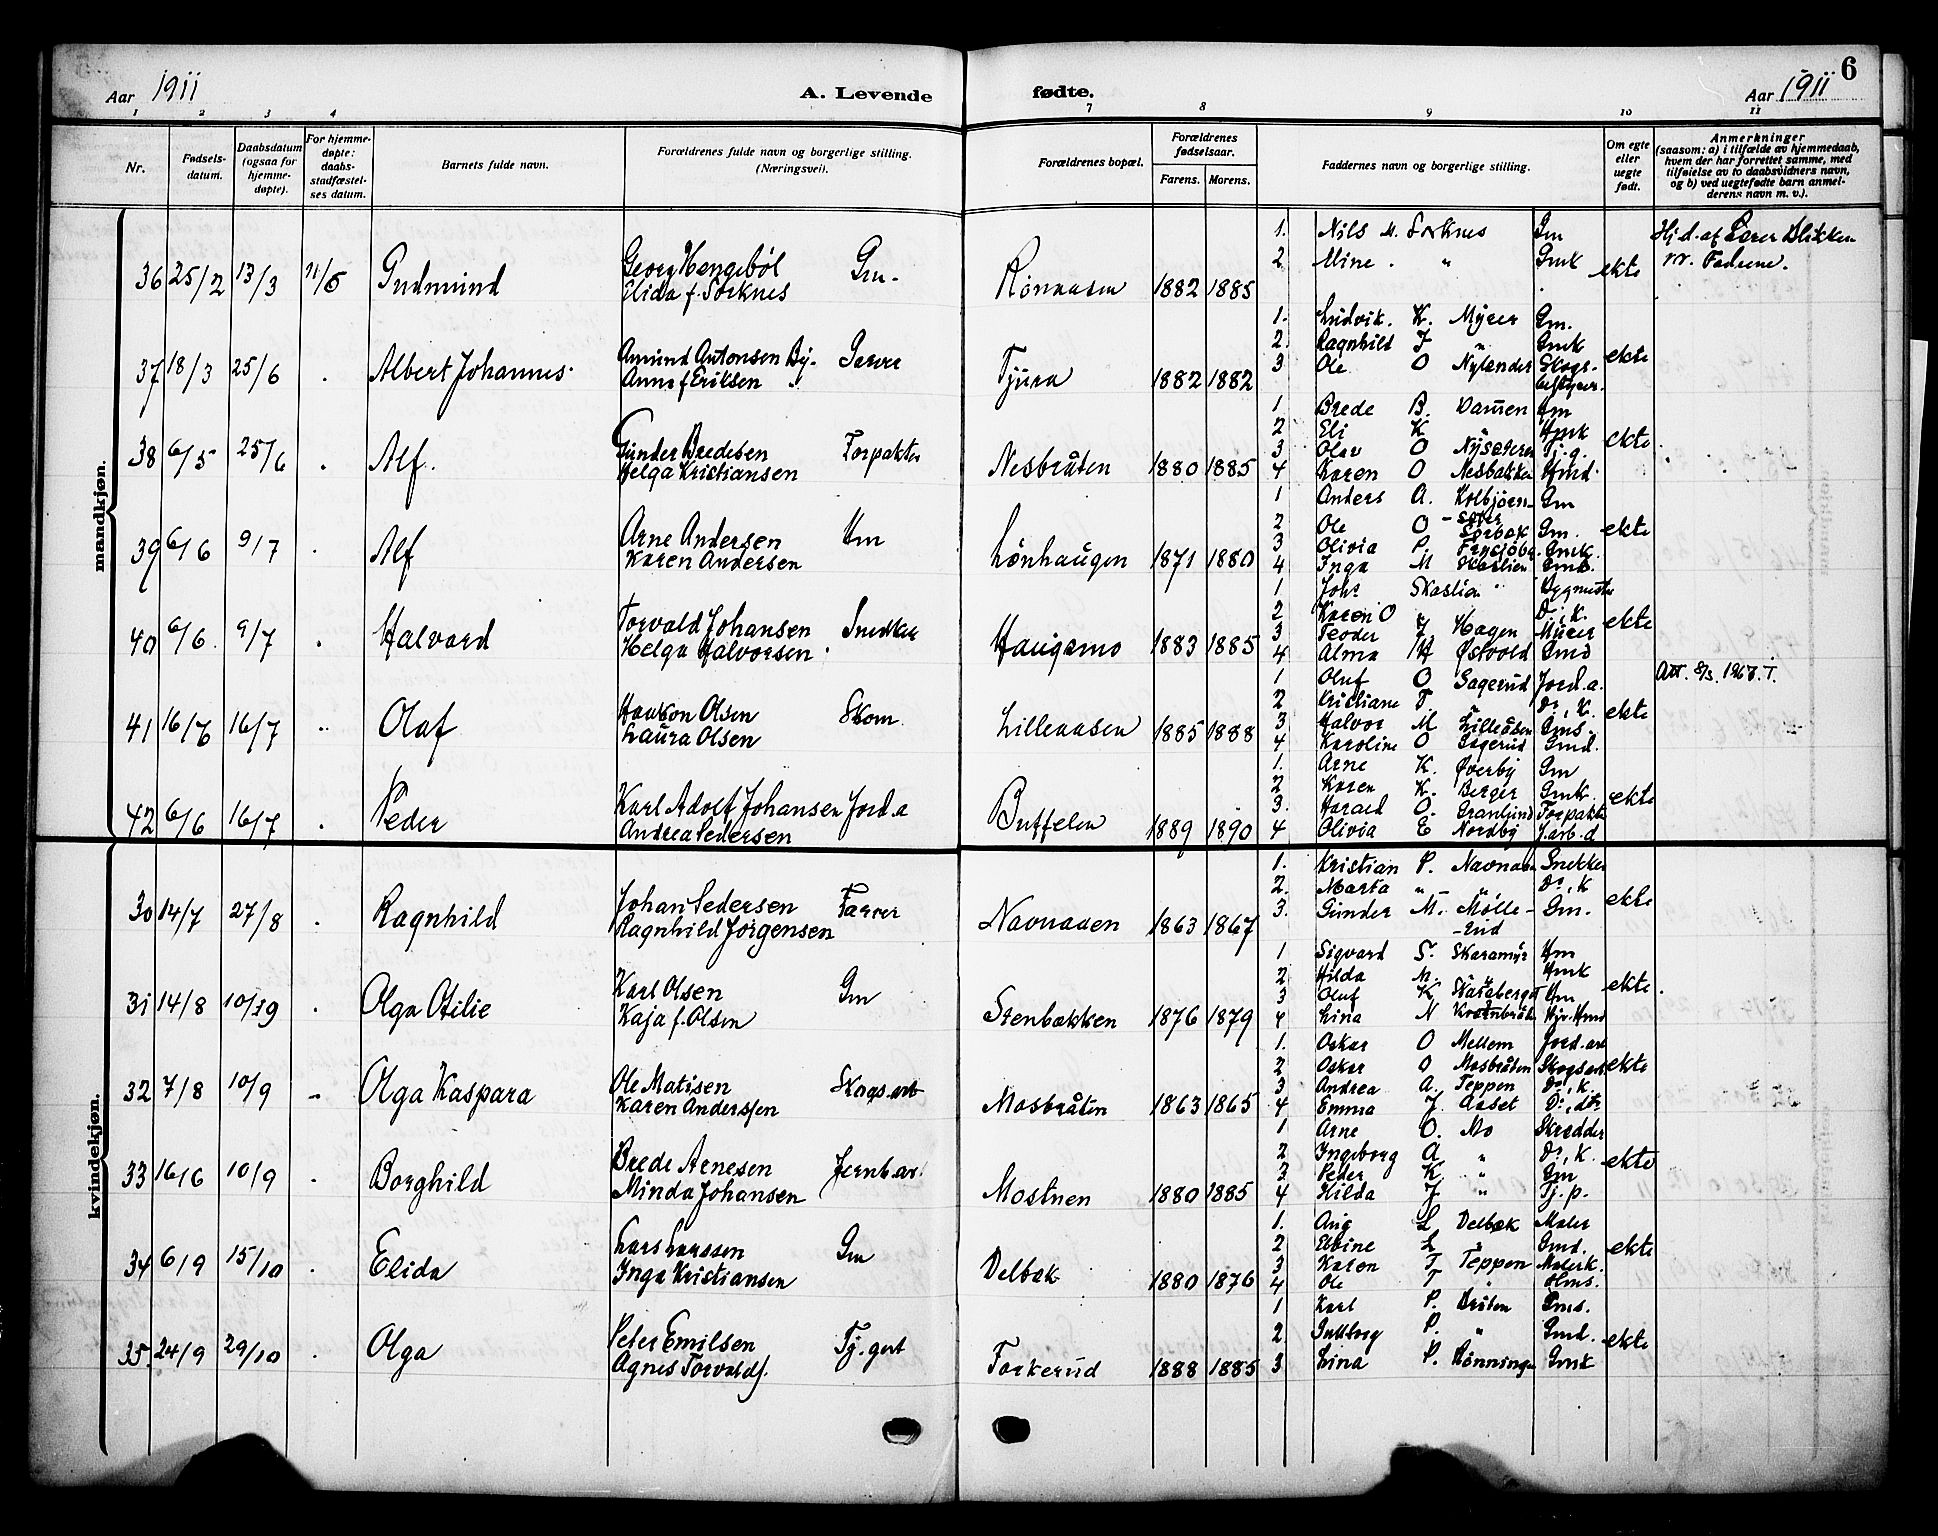 6
Aar 1911
A. Levende
fødte.
Aar 1911
1 2 3 4 7 8 9 10 11
Nr.
Fødsels-
datum.
Daabsdatum
(ogsaa for
hjemme-
døpte).
For hjemme-
døpte:
daabs-
stadfæstel-
ses datum.
Barnets fulde navn.
Forældrenes fulde navn og borgerlige stilling.
(Næringsvei).
Forældrenes bopæl.
Forældrenes
fødselsaar.
Farens. Morens.
Faddernes navn og borgerlige stilling.
Om egte
eller
uegte
født.
Anmerkninger
(saasom: a) i tilfælde av hjemmedaab,
hvem der har forrettet samme, med
tilføielse av to daabsvidners navn,
og b) ved uegtefødte barn anmel-
derens navn m. v.).
mandkjøn.
36 25/2 13/3 11/6 Gudmund
Georg Hengebøl Gm.
Elida f. Sorknes
Rønaasen 1882 1885
1. Nils M. Sorknes Gm
2 Mine " Gmk
ekte
37 18/3 25/6 . Albert Johannes
Amund Antonsen By Garver
Anna f Eriksen "
Tjura 1882 1882
1. Ludvik K. Myrer Gm.
2. Ragnhild J " Gmk
3 Ole O Nylander Skogs-
bestyrer.
ekte
38 6/5 25/6 . Alf.
Gunder Bredesen Forpakter
Helga Kristiansen
Nesbråten 1880 1885
1 Brede B. Damen Hm
2 Eli K " Hmk
3 Olav O Nysæteren Tj.g.
4 Karen O Nesbakken Hmd.
ekte
39 6/6 9/7 . Alf
Arne Andersen Hm
Karen Andersen
Lønhaugen 1871 1880
1 Anders A. Kolbjørn- Gm
-sæter
2 Ole O Sørbak Gm.
3 Olivia P. Frysjøbg. Gmk.
4 Inga M Skaslien Gmd.
ekte
40 6/6 9/7 . Halvard
Torvald Johansen Snedker
Helga Halvorsen
Haugamo 1883 1885
1 Johs Skaslien Bygmester
2 Karen O " Do, K.
3 Teodor J. Hagen Murer
4 Alma H Østvold Gmd
ekte
41 16/6 16/7 " Olaf
Haakon Olsen Skom.
Laura Olsen
Lilleaasen 1885 1888
1 Oluf O Sagerud Jord.a.
2 Kristiane T. " Do, K.
3 Halvor M Lilleåsen Gms.
4 Karoline O Sagerud Gmd.
ekte
Att. 8/3. 1967. T.
42 6/6 16/7 . Peder
Karl Adolf Johansen Jord.a
Andrea Pedersen
Buffelen 1889 1890
1. Arne K. Øverby Gm
2 Karen K. Berger Gmk.
3. Harald O. Granlund Forpakter
4 Olivia E Nordby J.arb.d
ekte
kvindekjøn.
30 14/7 27/8 . Ragnhild
Johan Pedersen Farver
Ragnhild Jørgensen
Navnaaen 1863 1867
1. Kristian P. Navnaaen Snekker
2. Marta " " Do, K
3. Gunder M. Mølle- Gm.
-rud
ekte
31 14/8 10/9 . Olga Otilie
Karl Olsen Gm
Kaja f. Olsen
Stenbakken 1876 1879
1 Sigvard S. Skaramyr Hm
2 Hilda M. " Hmk
3 Oluf K Skaraberget Hm
4 Lina N
ekte
32 7/8 10/9 - Olga Kaspara
Ole Matisen Skogs.arb
Karen Anderssen
Mosbråten 1863 1865
1. Oskar O Mellem Jord.arb
2 Oskar O Mosbråten Skogsarb
3 Andrea A. Teppen Do, K.
4 Emma J. Aaset Do, dtr
ekte
33 16/6 10/9 . Borghild
Brede Arnesen Jernb.ar.
Minda Johansen
Mostuen 1880 1885
1 Arne O. Mo Skrædder
2 Ingeborg A " Do, K.
3 Peder K " Gm
4 Hilda J " Tj.p.
ekte
34 6/9 15/10 . Elida
Lars Larssen Gm
Inga Kristiansen
Delbæk 1880 1876
1. Aug L Delbæk Maler
2 Ebbine L " Gmd.
3 Karen T Teppen Malerk.
4 Ole T "
ekte
35. 24/9 29/10 . Olga
Peter Emilsen Tj.gut
Agnes Torvalds.
Forkerud 1888 1885
1 Karl P. Bråten Gms.
2 P. " Gmd.
3 Lina P. Rønningen Gmk
ekte